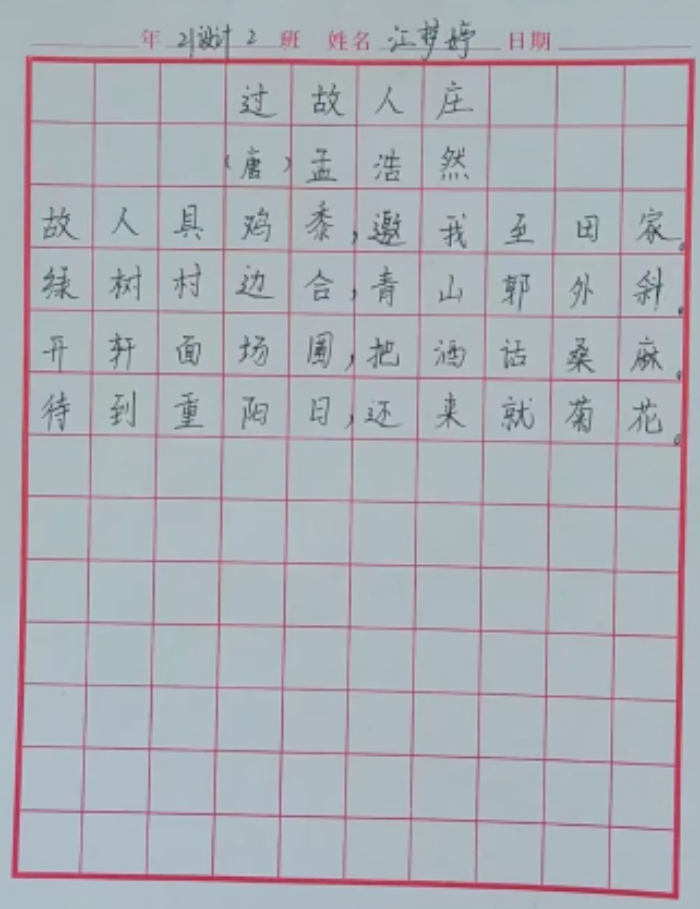 年 21设计2 班 姓名 江梦婷 日期
过故人庄
（唐）孟浩然
故人具鸡黍，邀我至田家。
绿树村边合，青山郭外斜。
开轩面场圃，把酒话桑麻。
待到重阳日，还来就菊花。